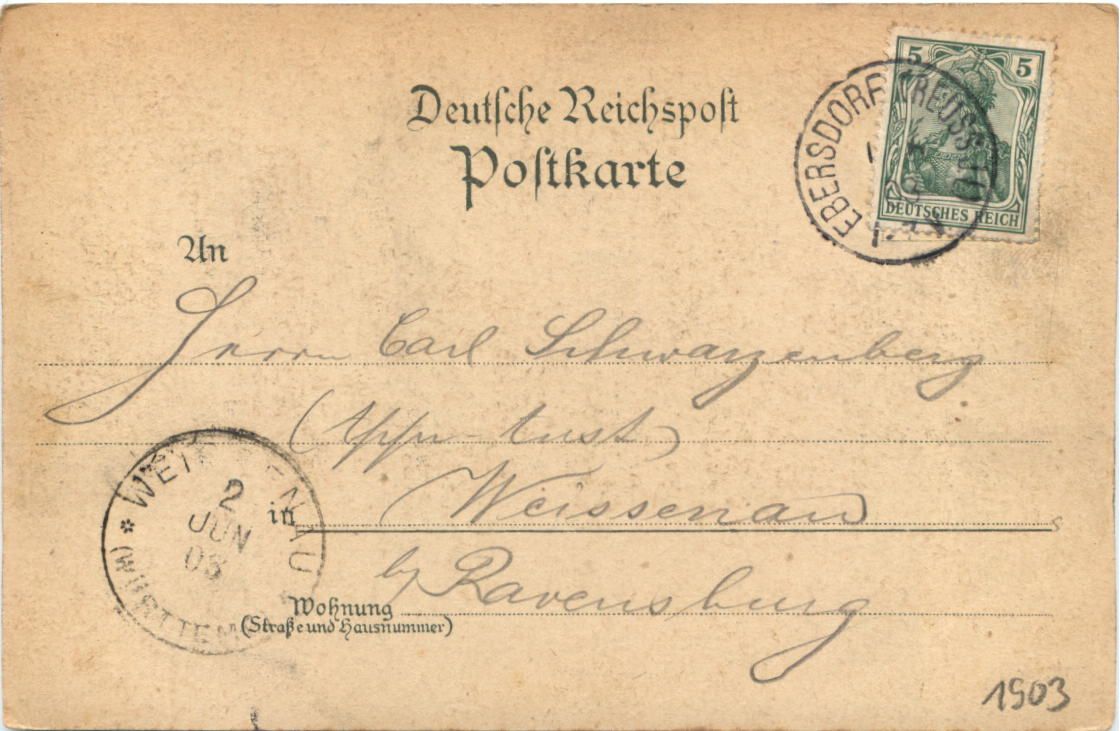 Deutsche Reichspost
Postkarte
5 5
DEUTSCHES REICH
EBERSDORF (REUSS
An
Herrn Carl Schwarzenberg
Weissenau
in
by Ravensburg
WEI ENAU
2
JUN
03
(WÜRTTEM
Wohnung
(Straße und Hausnummer)
1903